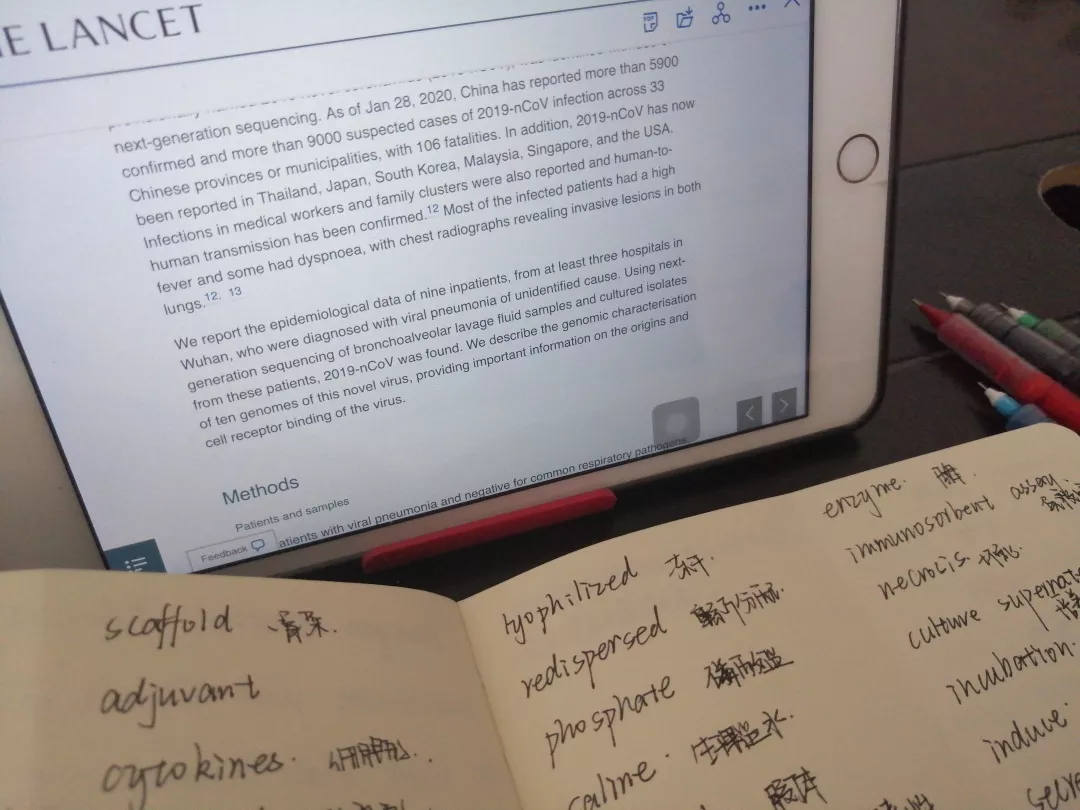 THE LANCET
next-generation sequencing. As of Jan 28, 2020, China has reported more than 5900
confirmed and more than 9000 suspected cases of 2019-nCoV infection across 33
Chinese provinces or municipalities, with 106 fatalities. In addition, 2019-nCoV has now
been reported in Thailand, Japan, South Korea, Malaysia, Singapore, and the USA.
Infections in medical workers and family clusters were also reported and human-to-
human transmission has been confirmed.12 Most of the infected patients had a high
fever and some had dyspnoea, with chest radiographs revealing invasive lesions in both
lungs.12, 13
We report the epidemiological data of nine inpatients, from at least three hospitals in
Wuhan, who were diagnosed with viral pneumonia of unidentified cause. Using next-
generation sequencing of bronchoalveolar lavage fluid samples and cultured isolates
from these patients, 2019-nCoV was found. We describe the genomic characterisation
of ten genomes of this novel virus, providing important information on the origins and
cell receptor binding of the virus.
Methods
Patients and samples
atients with viral pneumonia and negative for common respiratory pathogens,
Feedback
scaffold 骨架.
adjuvant
cytokines.
lyophilized 冻干.
redispersed
phosphate
saline.
enzyme. 酶.
immunosorbent assay
necrosis 坏死.
culture supernat
incubation.
induce.
secre